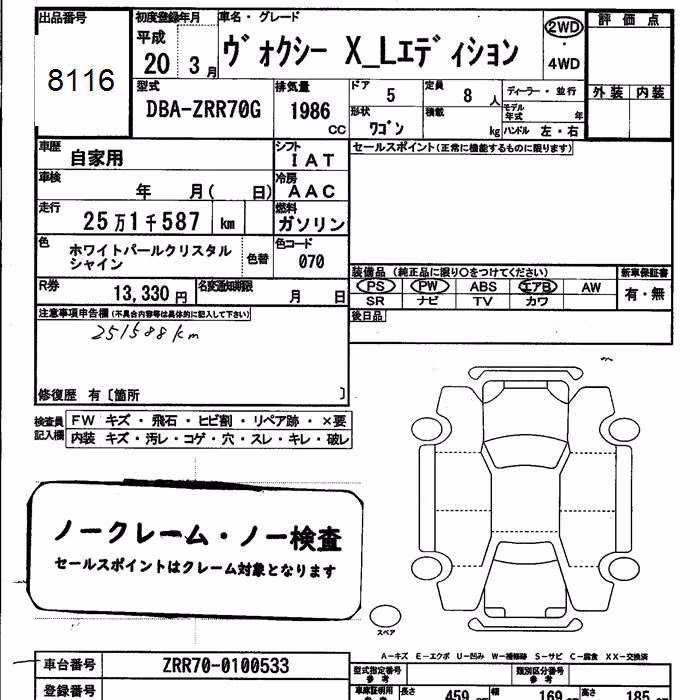 出品番号 8116
初度登録年月 平成 20 3月
車名・グレード ヴォクシー X_Lエディション
2WD・4WD
評価点
外装 内装
型式 DBA-ZRR70G
排気量 1986 CC
ドア 5
定員 8 人
形状 ワゴン
積載 kg
ディーラー・並行
モデル年式 年
ハンドル 左・右
車歴 自家用
シフト IAT
セールスポイント(正常に機能するものに限ります)
車検 年 月( 日)
冷房 AAC
走行 25万1千587 km
燃料 ガソリン
色 ホワイトパールクリスタルシャイン
色替
色コード 070
装備品 (純正品に限り○をつけてください)
PS PW ABS エアB AW
SR ナビ TV カワ
新車保証書 有・無
R券 13,330円
名変通知期限 月 日
後日品
注意事項申告欄(不具合内容等は具体的に記入して下さい)
251588km
修復歴 有〔箇所 〕
検査員記入欄
FW キズ・飛石・ヒビ割・リペア跡・×要
内装 キズ・汚レ・コゲ・穴・スレ・キレ・破レ
ノークレーム・ノー検査
セールスポイントはクレーム対象となります
スペア
A-キズ E-エクボ U-凹み W-補修跡 S-サビ C-腐食 XX-交換済
車台番号 ZRR70-0100533
型式指定番号 参考
類別区分番号 参考
登録番号
車庫証明用 参考
長さ 459
幅 169
高さ 185